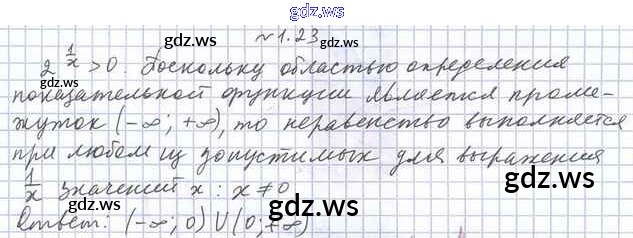 gdz.ws
№ 1.23
gdz.ws gdz.ws
2^{1/x} > 0. Поскольку областью определения
показательной функции является проме-
жуток (-∞; +∞), то неравенство выполняется
при любом из допустимых для выражения
1/x значений x : x ≠ 0
Ответ: (-∞; 0) ∪ (0; +∞)
gdz.ws gdz.ws